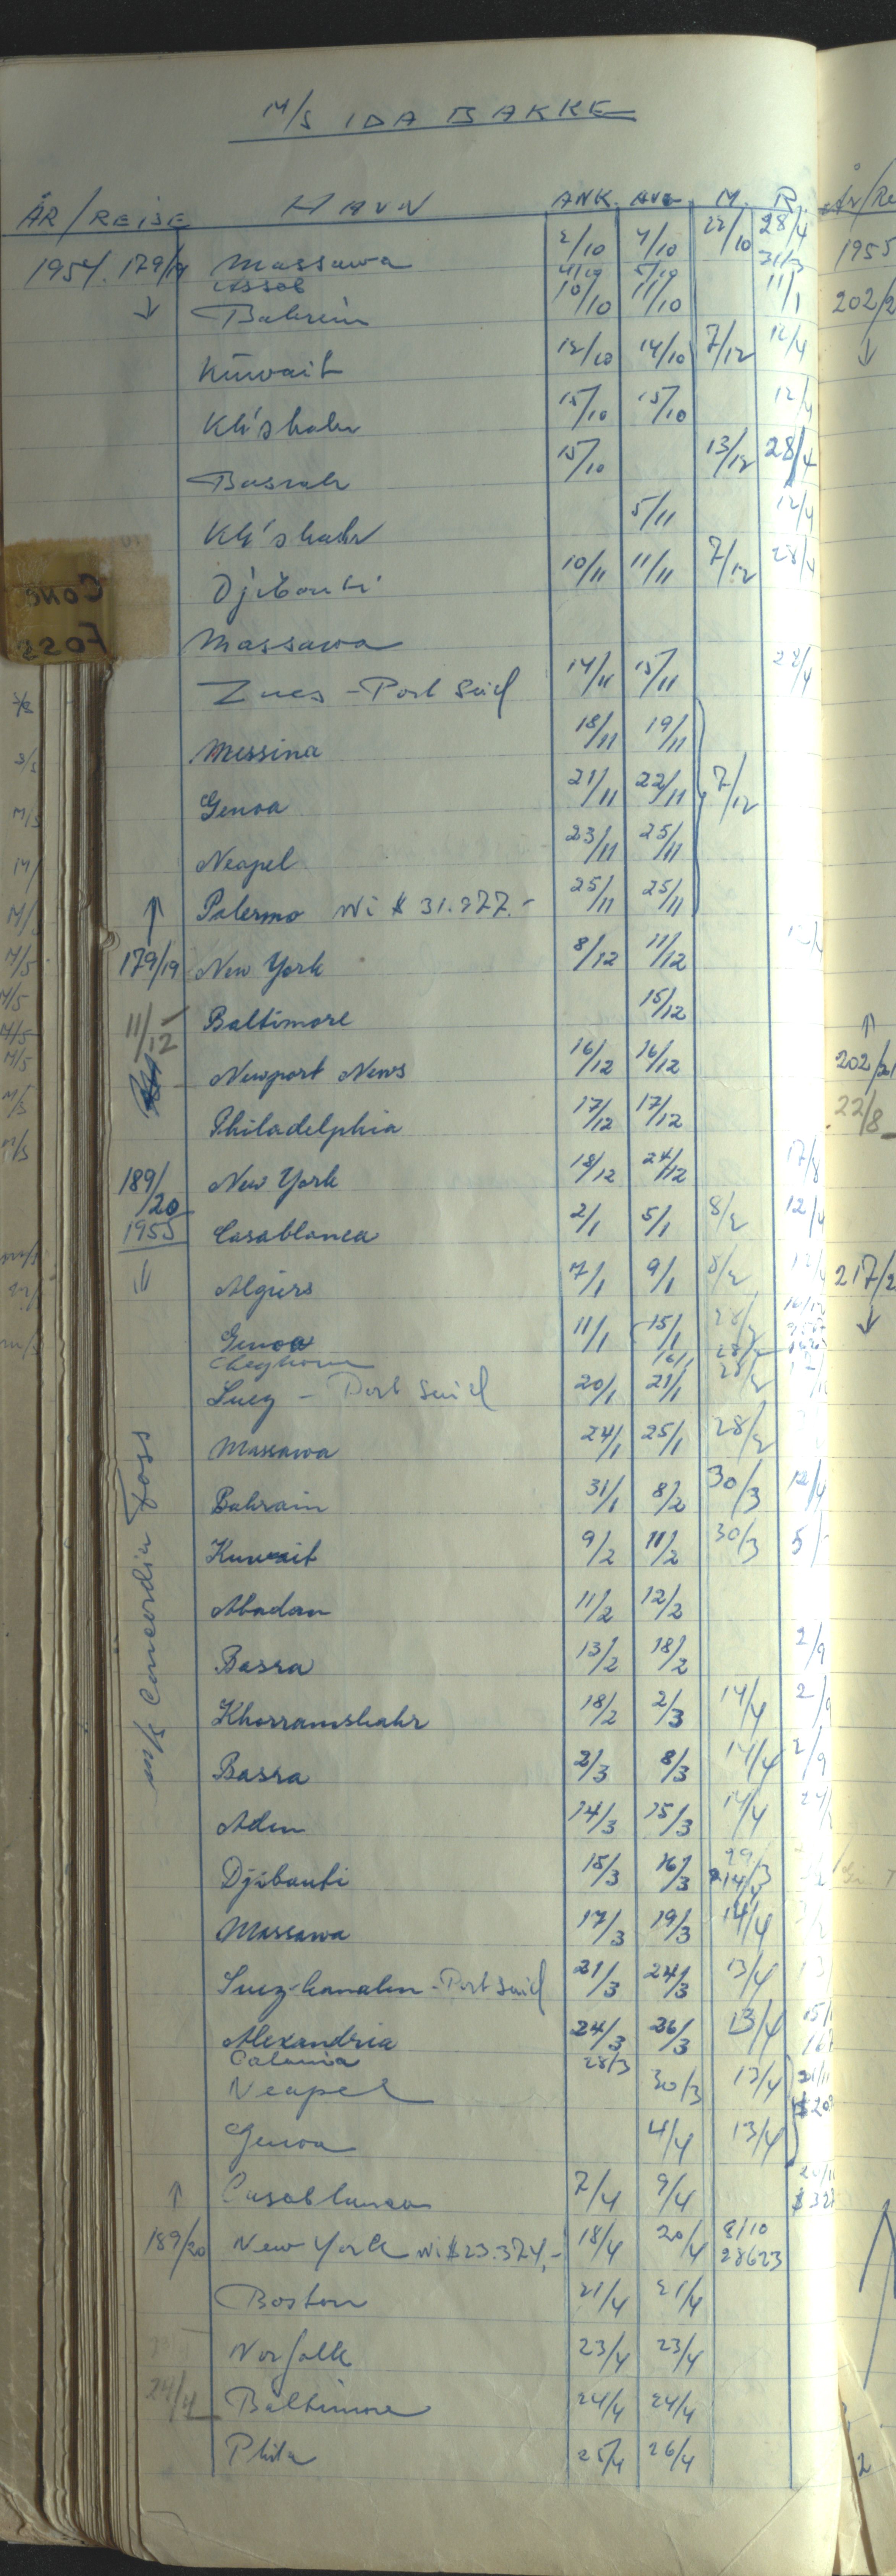 M/S IDA BAKKE
ÅR/REISE HAVN ANK. AVG. M. R.
1954. 179/19 Massawa 2/10 4/10 22/10 28/4
Assab 4/10 5/10 31/3
↓ Bahrein 10/10 11/10 11/1
Kuwait 12/10 14/10 7/12 12/4
Kh'shahr 15/10 15/10 12/4
Basrah 15/10 13/12 28/4
Kh'shahr 5/11 12/4
Djibouti 10/11 11/11 7/12 28/4
Massawa
Zues - Port Said 14/11 15/11 22/4
Messina 18/11 19/11
Genoa 21/11 22/11 7/12
Neapel 23/11 25/11
↑ Palermo Wi $ 31.977.- 25/11 25/11
179/19 New York 8/12 11/12
11/12 Baltimore 15/12
Newport News 16/12 16/12
Philadelphia 17/12 17/12
189/20 New York 18/12 24/12 17/8
1955 Casablanca 2/1 5/1 8/2 12/4
↓ Algiers 7/1 9/1 8/2 12/4
Genoa 11/1 15/1 28/2
Leghorn 16/1 28/2
Suez - Port Said 20/1 21/1 28/2
Massawa 24/1 25/1 28/2
Bahrain 31/1 8/2 30/3 12/4
Kuwait 9/2 11/2 30/3 5/
Abadan 11/2 12/2
Basra 13/2 18/2 2/9
Khorramshahr 18/2 2/3 14/4 2/9
Basra 2/3 8/3 14/4 2/9
Aden 14/3 15/3 14/4
Djibouti 15/3 16/3 14/3
Massawa 17/3 19/3 14/4
Suez-kanalen - Port Said 21/3 24/3 13/4
Alexandria 24/3 26/3 13/4
Catania 28/3
Neapel 30/3 13/4
Genoa 4/4 13/4
↑ Casablanca 7/4 9/4
189/20 New York Wi $ 23.374,- 18/4 20/4 8/10
28623
Boston 21/4 21/4
Norfolk 23/4 23/4
24/4 Baltimore 24/4 24/4
Phila 25/4 26/4
m/s Concordia Foss
CONC
FOSS
År/Re
1955
202/2
↓
↑
202/21
22/8
217/2
↓